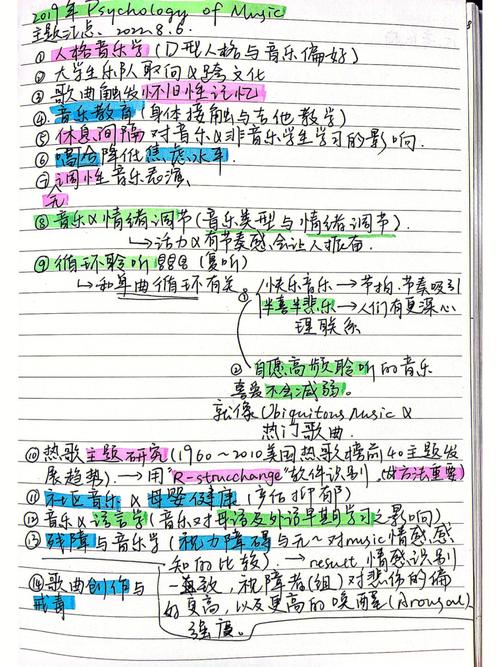 2019年 Psychology of Music
主题汇总. 2022.8.6.
① 人格音乐学 (D型人格与音乐偏好)
② 大学生乐队取向&跨文化
③ 歌曲触发怀旧性记忆
④ 音乐教育 (身体接触与吉他教学)
⑤ 休息间隔对音乐&非音乐学生学习的影响.
⑥ 合降低焦虑水平.
⑦ 调性音乐表演.
无
⑧ 音乐&情绪调节 (音乐类型与情绪调节).
↳活力&有节奏感会让人振奋.
⑨ 循环聆听 (复听)
↳和单曲循环有关
① 快乐音乐→节拍.节奏吸引
半喜半悲乐→人们有更深心
理联系
② 自愿高频聆听的音乐
喜爱不会减弱。
就像 Ubiquitous Music &
热门歌曲.
⑩ 热歌主题研究 (1960~2010美国热歌榜前40主题发
展趋势).→用"R-strucchange"软件识别, 方法重要)
⑪ 社区音乐 & 母婴健康 (产后抑郁)
⑫ 音乐&语言学 (音乐对母语及外语早期学习之影响)
⑬ 残障与音乐学 (视力障碍与无~对music情感感
知的比较). →result 情感识别
⑭ 歌曲创作与 一致, 视障者(组)对悲伤的偏
戒毒 好更高, 以及更高的唤醒 (Arousal)
强度。